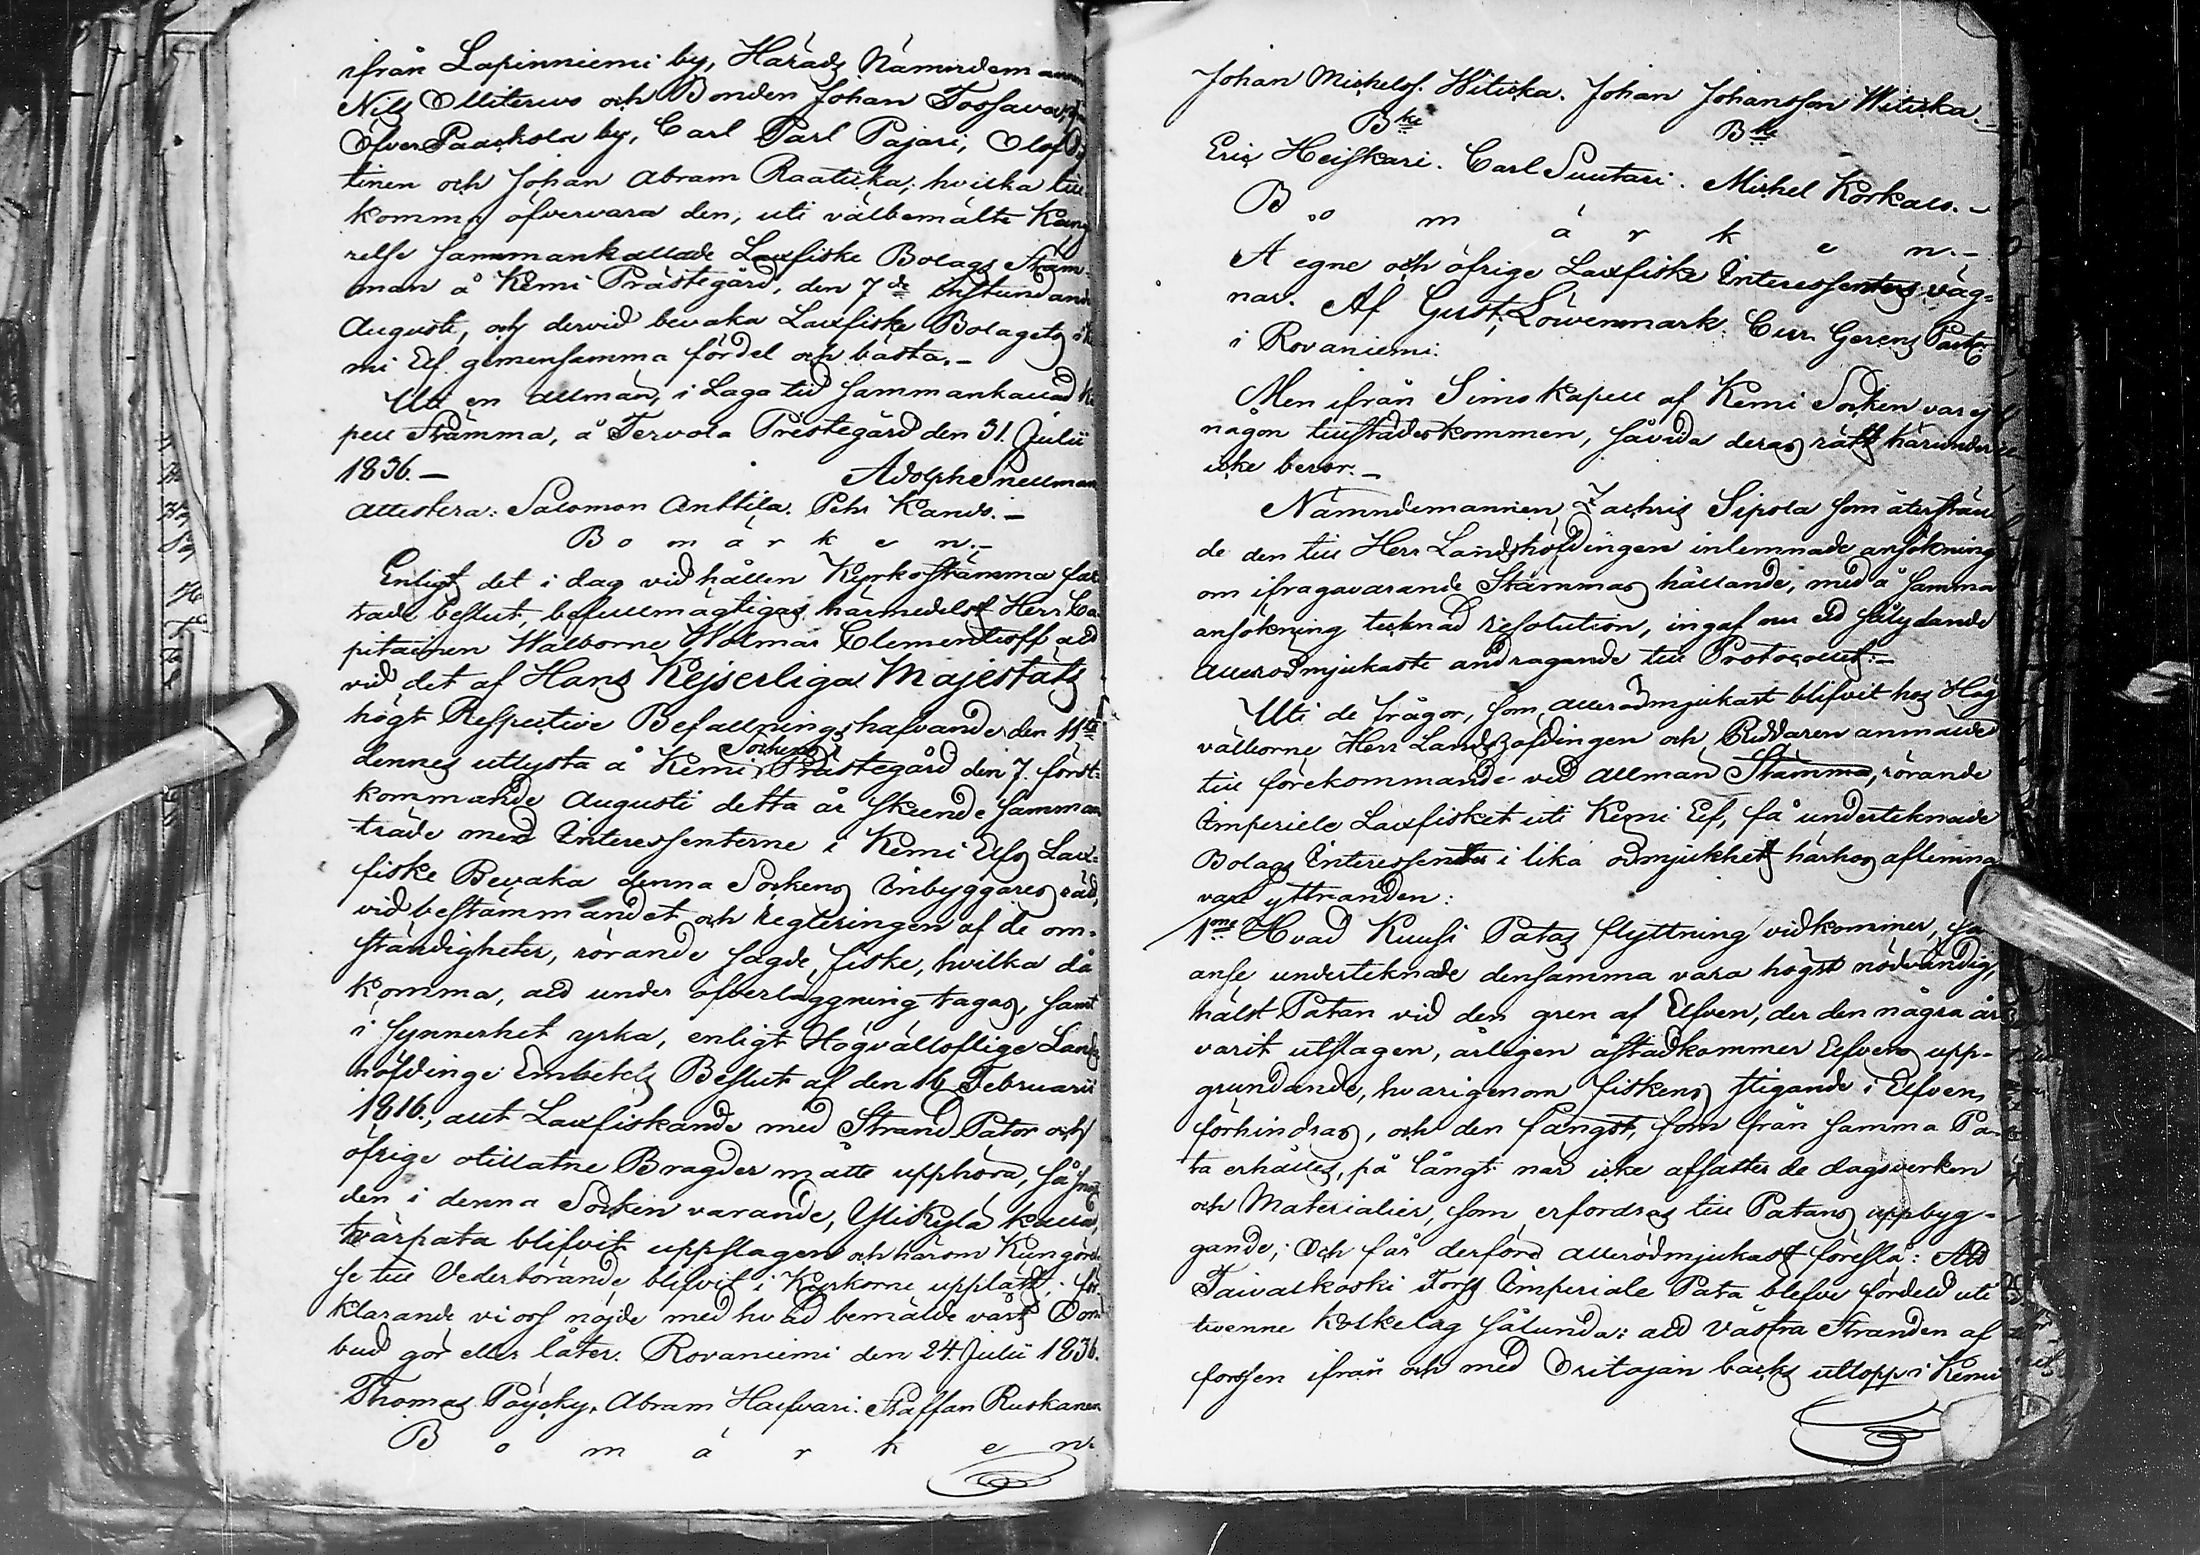 ifrån Lapinniemi by, Härads Nämndem
Nils Ollitervo och Bonden Johan Tossava,
Öfver Paackola by, Carl Parl Pajari, Olof
tinen och Johan Abram Raaticka; hvilka till
komma öfvervara den, uti välbemälte Kung
relse sammankallade Laxfiske Bolags Stäm-
man å Kemi Prästegård, den 7de instundande
Augusti, och dervid bevaka Laxfiske Bolagets i Ke
mi Elf gemensamma fördel och bästa.-
Uti en allmän, i Laga tid sammankallad Ka
pell Stämma, å Tervola Prestegård den 31. Julii
1836.- Adolph Snellman
Attestera: Salomon Anttila. Pehr Kando.-
B o m ä r k e n.-
Enligt det i dag vid hållen Kyrkostämma fat
tade beslut, befullmägtigas härmedelst Herr Ca
pitainen Välborne Wolmar Clementeoff att
vid det af Hans Kejserliga Majestäts
högt Respective Befallningshafvande den 11te
dennes utlysta å Kemi Sockens Prästegård den 7. först-
kommande Augusti detta år skeende samman
träde med Interessenterne i Kemi Elfs Lax-
fiske Bevaka denna Sockens Inbyggares rätt,
vid bestämmandet och regleringen af de om-
ständigheter, rörande sagde fiske, hvilka då
komma, att under öfverläggning tagas, samt
i synnerhet yrka, enligt Högvällofliga Lands
höfdinge Embetets Beslut af den 16 Februarii
1816., allt Laxfiskande med Strand Pator och
öfrige otillåtne Bragder måtte upphöra, så snart
den i denna Socken varande, Ylikylä kalla
tvärpata blifvit uppslagen och härom Kungörel
se till Vederbörande blifvit i Kyrkorne uppläst; för
klarande vi oss nöjde med hvad bemälde vårt Om
bud gör eller låter. Rovaniemi den 24. Julii 1836.
Thomas Päycky. Abram Harfvari. Staffan Ruskanen
B o m ä r k e n.
Johan Michelss. Witicka. Johan Johansson Witicka.-
Bke Bke
Eric Heiskari. Carl Suutari. Michel Korkalo.-
B o m ä r k e n.-
A egne och öfrige Laxfiske Interessenters väg-
nar. Af Gust. Löwenmark. Curr. Gerens Past:
i Rovaniemi.
Men ifrån Simo Kapell af Kemi Socken var ej
någon tillstädeskommen, såvida deras rätt härunder
icke beror.-
Nämndemannen Zachris Sipola som återstäl
de den till Herr Landshöfdingen inlemnade ansökning
om ifragavarande Stämmas hållande, med å samma
ansökning tecknad resolution, ingaf nu ett sålydande
allerödmjukaste andragande till Protocollet:-
Uti de frågor, som allerödmjukast blifvit hos Hög
välborne Herr Landshöfdingen och Riddaren anmälde
till förekommande vid allmän Stämma, rörande
Imperiele Laxfisket uti Kemi Elf, få undertecknade
Bolags Interessenter i lika ödmjukhet härhos aflemna
våre yttranden:
1mo Hvad Kuusi Patas flyttning vidkommer, så
anse undertecknade densamma vara högst nödvändig,
hälst Patan vid den gren af Elfven, der den några år
varit utslagen, årligen åstadkommer Elfvens upp-
grundande, hvarigenom fiskens stigande i Elfven,
förhindras, och den fångst, som från samma Pa-
ta erhålles, på långt när icke affatter de dagsverken
och Materialier, som erfordras till Patans uppbyg-
gande; Och får derföre allerödmjukast föreslå: Att
Taivalkoski Forss Imperiale Pata blefve fördeld uti
tvenne kolkelag sålunda: att västra Stranden af
forssen ifrån och med Oritojan bäcks utlopp i Kemi